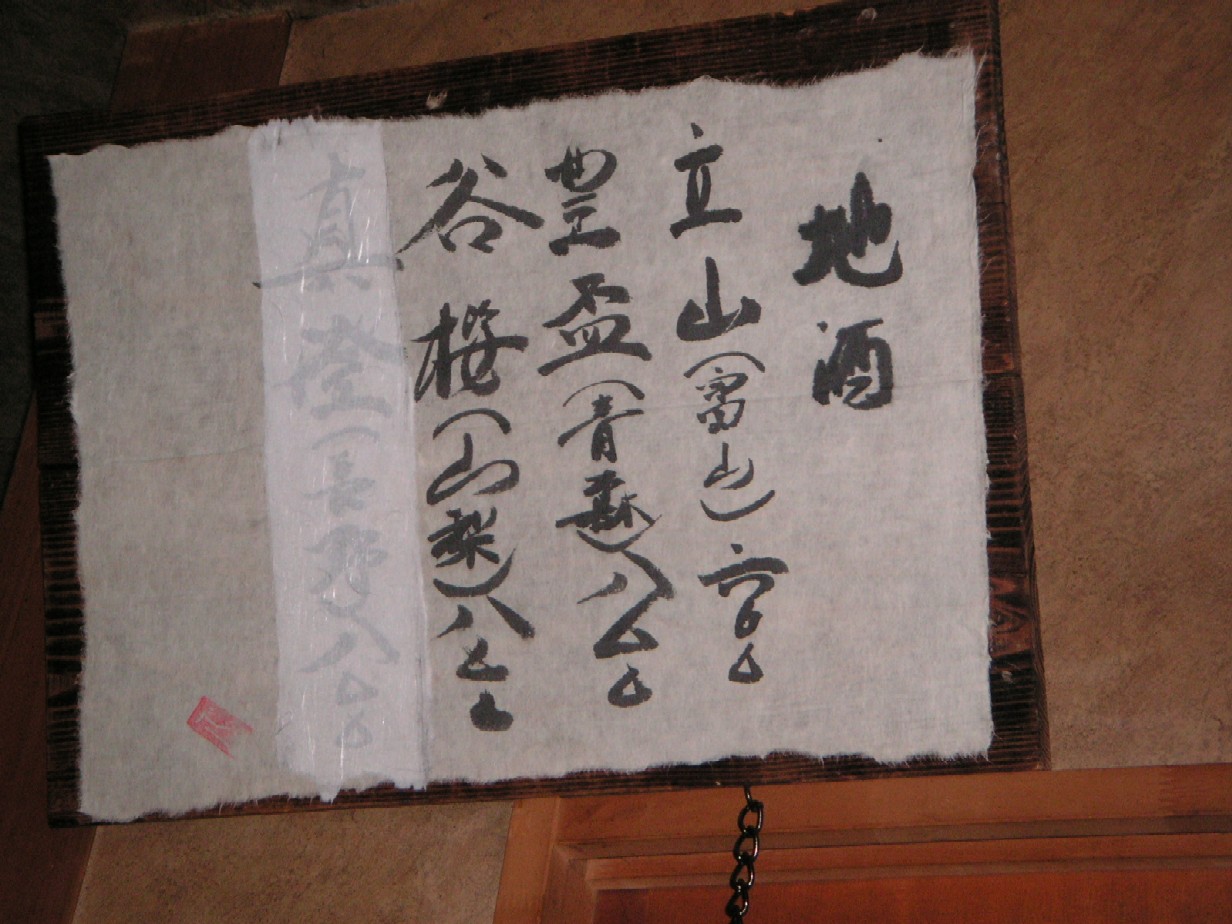 地酒
立山(富山)六〇〇
豊盃(青森)八〇〇
谷櫻(山梨)八〇〇
真澄(長野)八〇〇